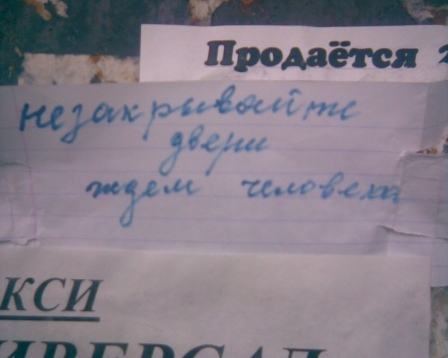 Продаётся 2
незакрывайте
двери
ждем человека
КСИ
ИВЕРСАЛ